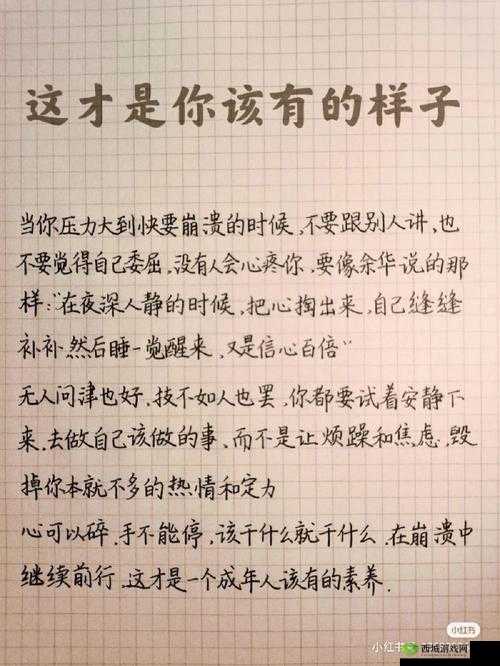 这才是你该有的样子
当你压力大到快要崩溃的时候,不要跟别人讲,也
不要觉得自己委屈,没有人会心疼你.要像余华说的那
样:"在夜深人静的时候,把心掏出来,自己缝缝
补补.然后睡一觉醒来,又是信心百倍"
无人问津也好.技不如人也罢,你都要试着安静下
来.去做自己该做的事,而不是让烦躁和焦虑,毁
掉你本就不多的热情和定力
心可以碎.手不能停,该干什么就干什么.在崩溃中
继续前行.这才是一个成年人该有的素养.
小红书
小红书
西城游戏网